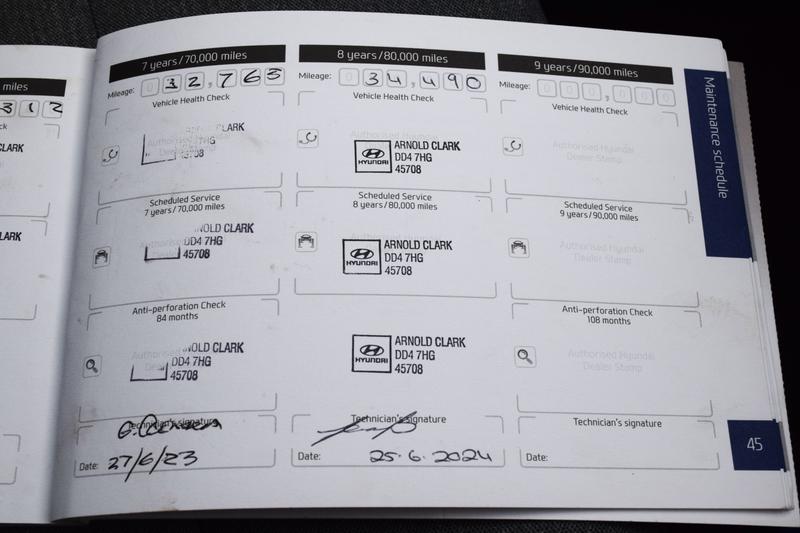 miles
312
ARK
LARK
7 years/70,000 miles
Mileage: 032,765
Vehicle Health Check
CLARK
7HG
45708
Scheduled Service
7 years/70,000 miles
NOLD CLARK
DD4 7HG
45708
Anti-perforation Check
84 months
NOLD CLARK
DD4 7HG
45708
Technician's signature
Date: 27/6/23
8 years/80,000 miles
Mileage: 034,490
Vehicle Health Check
Authorised Hyundai
HYUNDAI
ARNOLD CLARK
DD4 7HG
45708
Scheduled Service
8 years/80,000 miles
HYUNDAI
ARNOLD CLARK
DD4 7HG
45708
HYUNDAI
ARNOLD CLARK
DD4 7HG
45708
Technician's signature
Date: 25.6.2024
9 years/90,000 miles
Mileage: 000,000
Vehicle Health Check
Authorised Hyundai
Dealer Stamp
Scheduled Service
9 years/90,000 miles
Authorised Hyundai
Dealer Stamp
Anti-perforation Check
108 months
Authorised Hyundai
Dealer Stamp
Technician's signature
Date:
Maintenance schedule
45